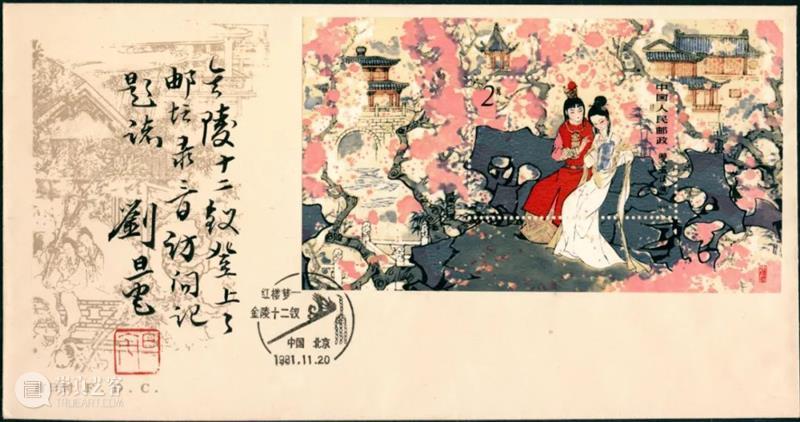 金陵十二钗登上了
邮坛录音访问记
题誌
劉旦宅
2元
中国人民邮政
红楼梦—
金陵十二钗
中国 北京
1981.11.20
F. D. C.
崇真艺客
TRUEART.COM